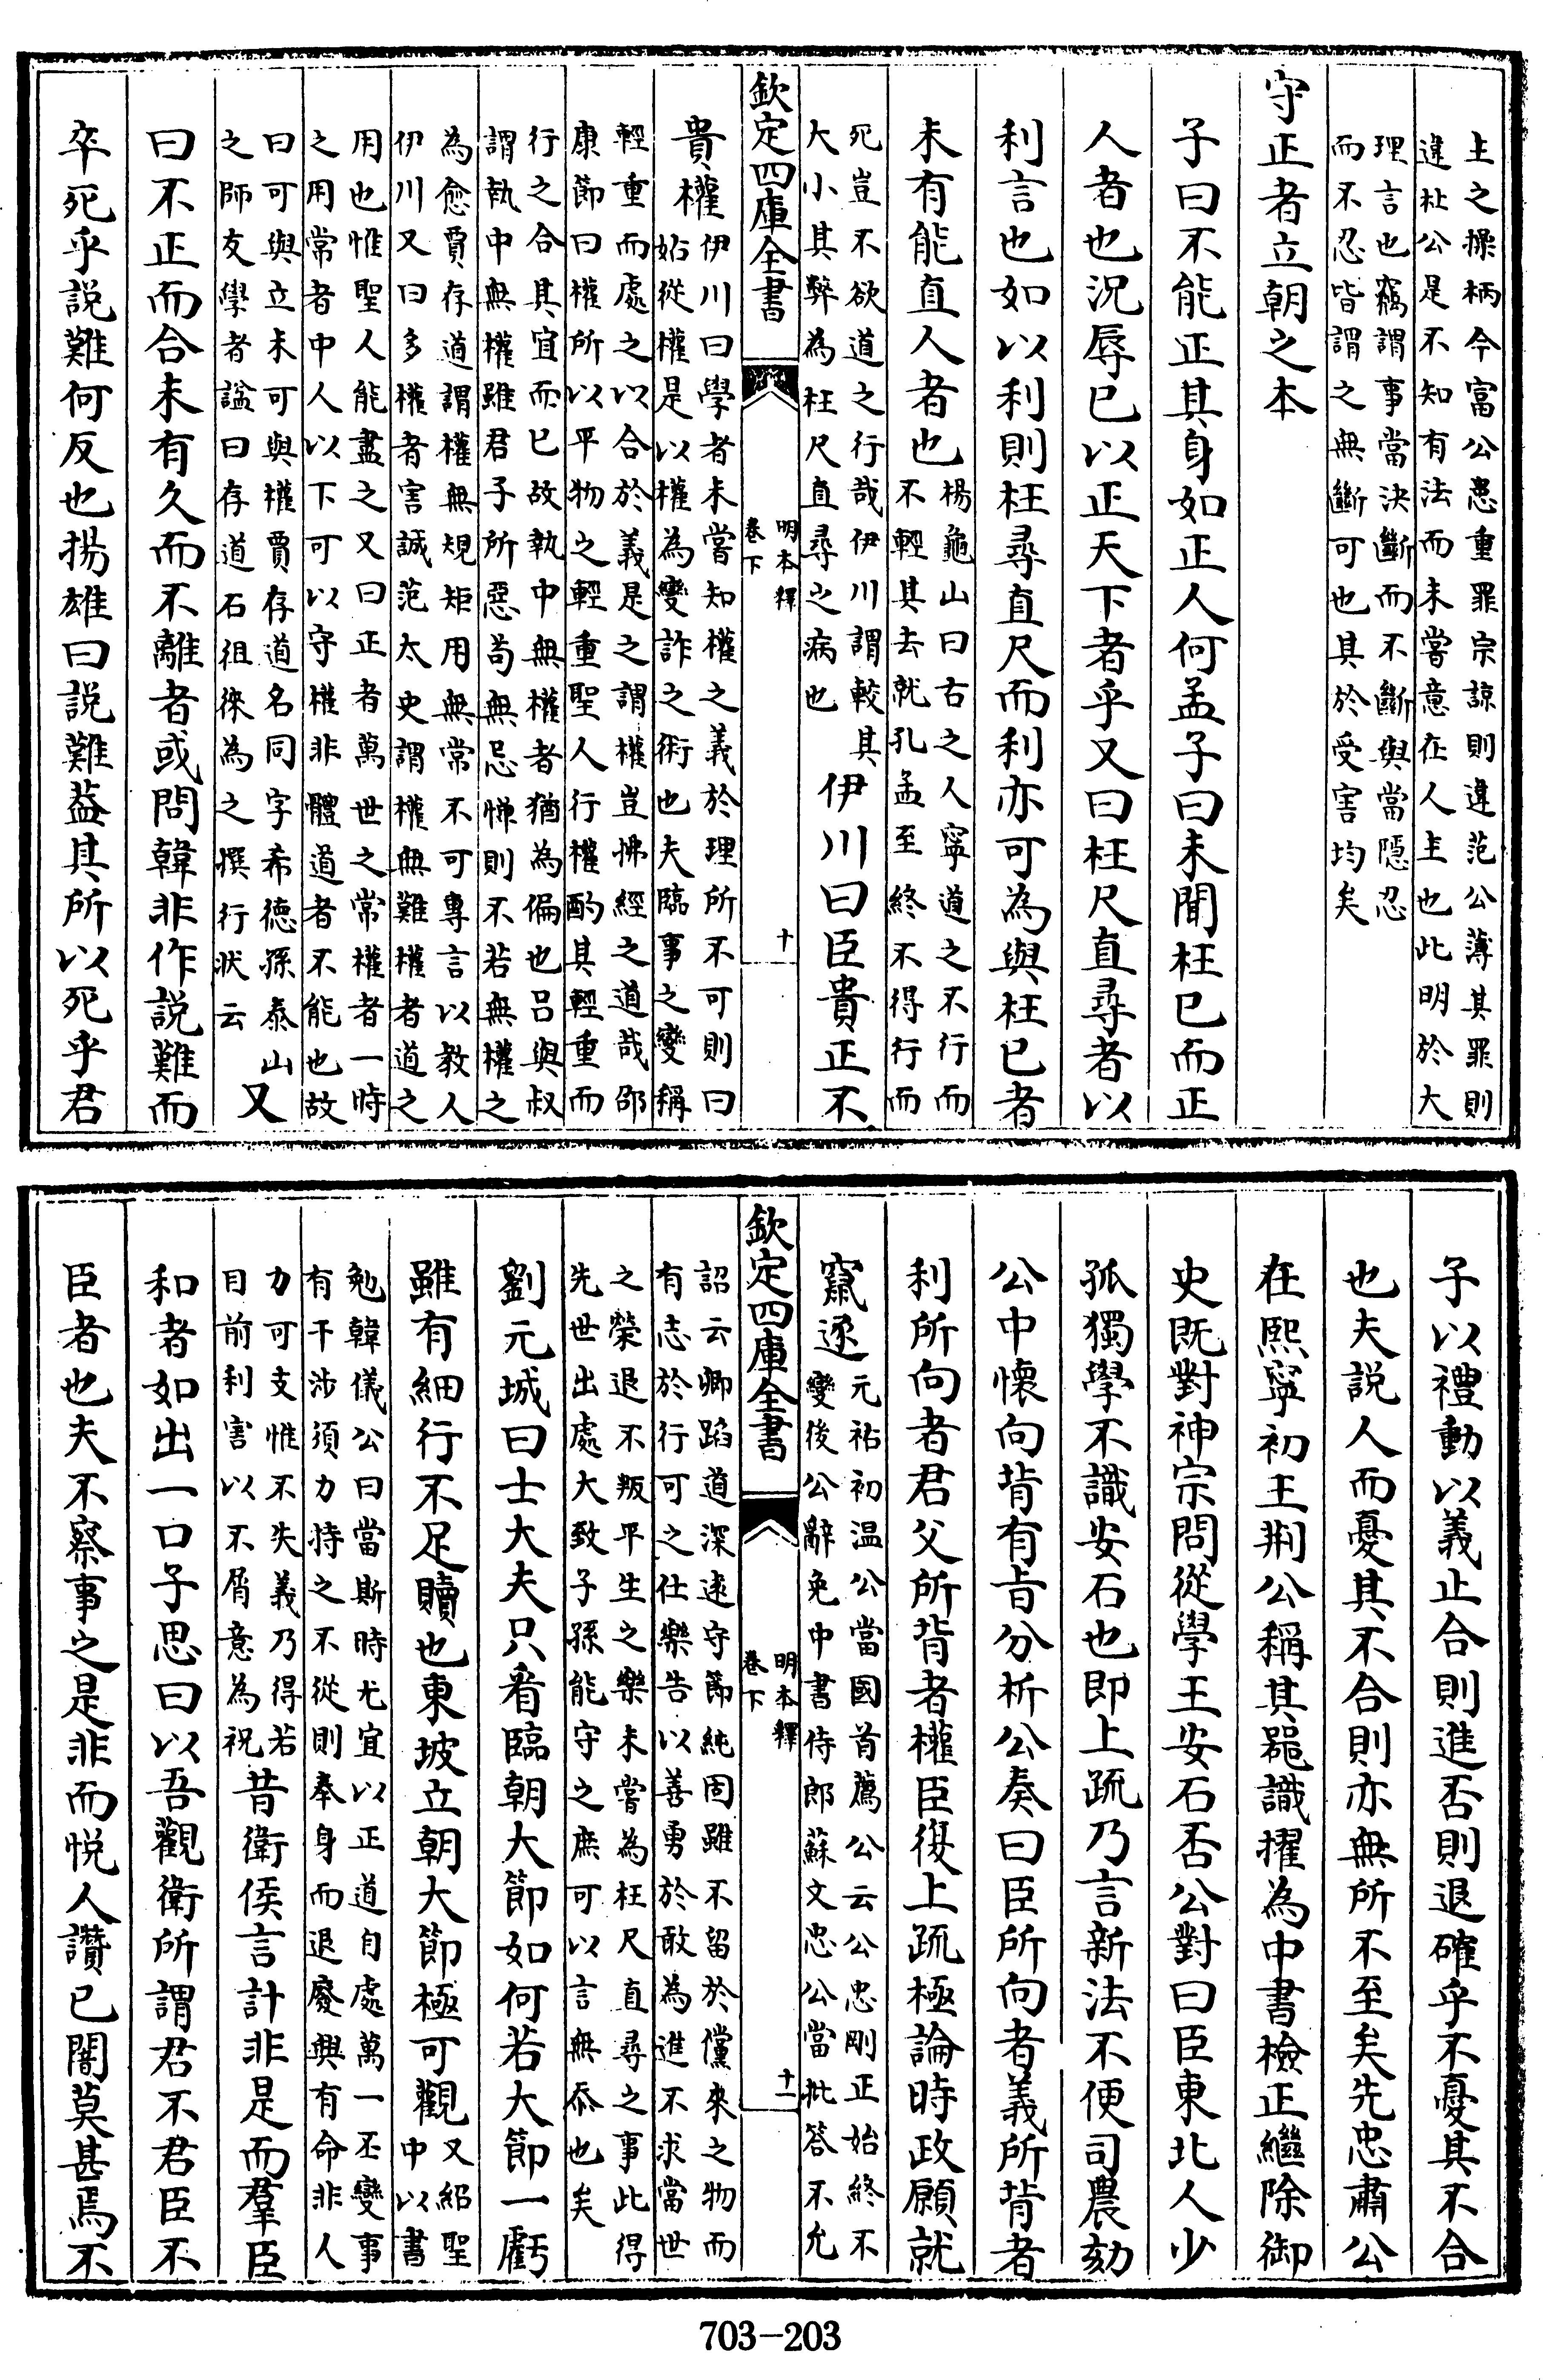 主之操柄今富公患重罪宗諒則違范公薄其罪則
違杜公是不知有法而未嘗意在人主也此明於大
理言也竊謂事當決斷而不斷與當隱忍
而不忍皆謂之無斷可也其於受害均矣
守正者立朝之本
子曰不能正其身如正人何孟子曰未聞枉已而正
人者也況辱已以正天下者乎又曰枉尺直尋者以
利言也如以利則枉尋直尺而利亦可為與枉已者
未有能直人者也
楊龜山曰古之人寧道之不行而
不輕其去就孔孟至終不得行而
死豈不欲道之行哉伊川謂較其
大小其弊為枉尺直尋之病也
伊川曰臣貴正不
欽定四庫全書
明本釋
卷下
十
貴權
伊川曰學者未嘗知權之義於理所不可則曰
姑從權是以權為變詐之術也夫臨事之變稱
輕重而處之以合於義是之謂權豈怫經之道哉邵
康節曰權所以平物之輕重聖人行權酌其輕重而
行之合其宜而已故執中無權者猶為偏也呂與叔
謂執中無權雖君子所惡苟無忌憚則不若無權之
為愈賈存道謂權無規矩用無常不可專言以教人
伊川又曰多權者害誠范太史謂權無難權者道之
用也惟聖人能盡之又曰正者萬世之常權者一時
之用常者中人以下可以守權非體道者不能也故
曰可與立未可與權賈存道名同字希德孫泰山
之師友學者諡曰存道石徂徠為之撰行狀云
又
曰不正而合未有久而不離者或問韓非作説難而
卒死乎説難何反也揚雄曰説難蓋其所以死乎君
子以禮動以義止合則進否則退確乎不憂其不合
也夫説人而憂其不合則亦無所不至矣先忠肅公
在熙寧初王荆公稱其器識擢為中書檢正繼除御
史既對神宗問從學王安石否公對曰臣東北人少
孤獨學不識安石也即上疏乃言新法不便司農劾
公中懷向背有旨分析公奏曰臣所向者義所背者
利所向者君父所背者權臣復上疏極論時政願就
竄逐
元祐初温公當國首薦公云公忠剛正始終不
變後公辭免中書侍郎蘇文忠公當批答不允
欽定四庫全書
明本釋
卷下
十一
詔云卿蹈道深遠守節純固雖不留於儻來之物而
有志於行可之仕樂告以善勇於敢為進不求當世
之榮退不叛平生之樂未嘗為枉尺直尋之事此得
先世出處大致子孫能守之庶可以言無忝也矣
劉元城曰士大夫只看臨朝大節如何若大節一虧
雖有細行不足贖也東坡立朝大節極可觀
又紹聖
中以書
勉韓儀公曰當斯時尤宜以正道自處萬一丕變事
有干涉須力持之不從則奉身而退廢興有命非人
力可支惟不失義乃得若
目前利害以不屑意為祝
昔衛侯言計非是而羣臣
和者如出一口子思曰以吾觀衛所謂君不君臣不
臣者也夫不察事之是非而悦人讚已闇莫甚焉不
703-203